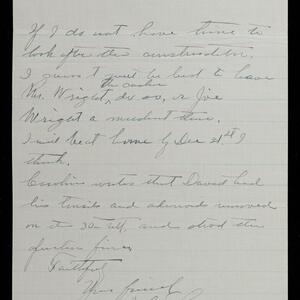 If I do not have time to
look after the construction.
I guess it will be best to have
the cashier
Mr. Wright, do so, or Joe
Wright a student there.
I will be at home by Dec 21st I
think.
Caroline writes that David had
his tonsils and adenoids removed
on the 30th ult, and stood the
operation fine.
Faithfully
Your friend